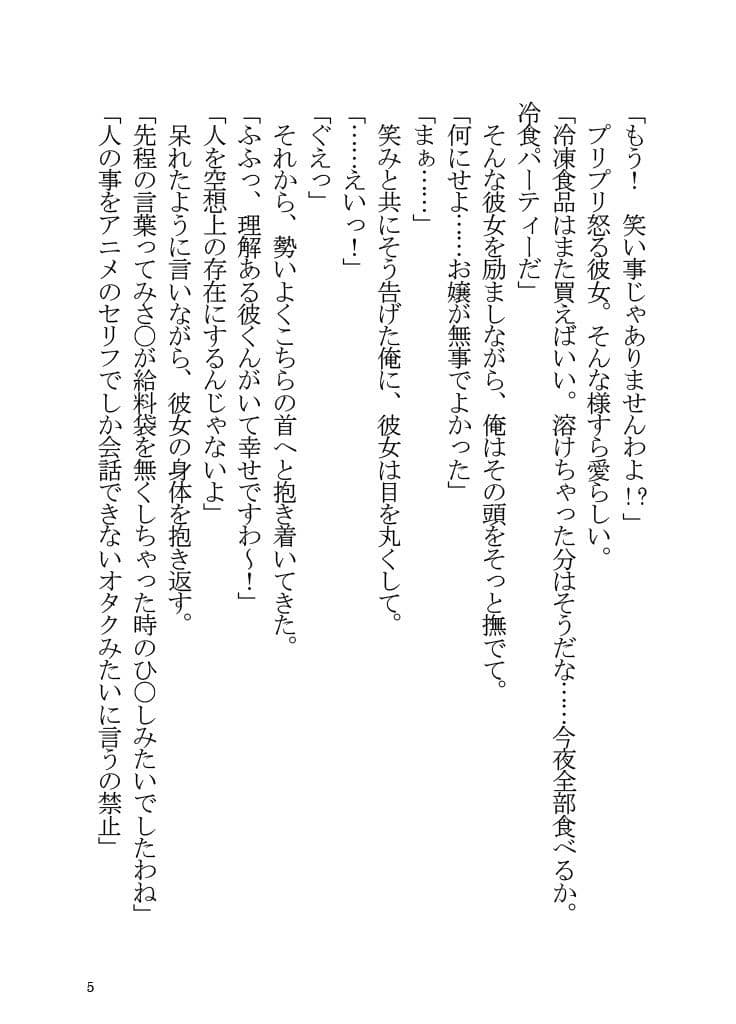 「もう!　笑い事じゃありませんわよ!?」
プリプリ怒る彼女。そんな様すら愛らしい。
「冷凍食品はまた買えばいい。溶けちゃった分はそうだな……今夜全部食べるか。
冷食パーティーだ」
そんな彼女を励ましながら、俺はその頭をそっと撫でて。
「何にせよ……お嬢が無事でよかった」
「まぁ……」
笑みと共にそう告げた俺に、彼女は目を丸くして。
「……えいっ!」
「ぐえっ」
それから、勢いよくこちらの首へと抱き着いてきた。
「ふふっ、理解ある彼くんがいて幸せですわ〜!」
「人を空想上の存在にするんじゃないよ」
呆れたように言いながら、彼女の身体を抱き返す。
「先程の言葉ってみさ〇が給料袋を無くしちゃった時のひ〇しみたいでしたわね」
「人の事をアニメのセリフでしか会話できないオタクみたいに言うの禁止」
5